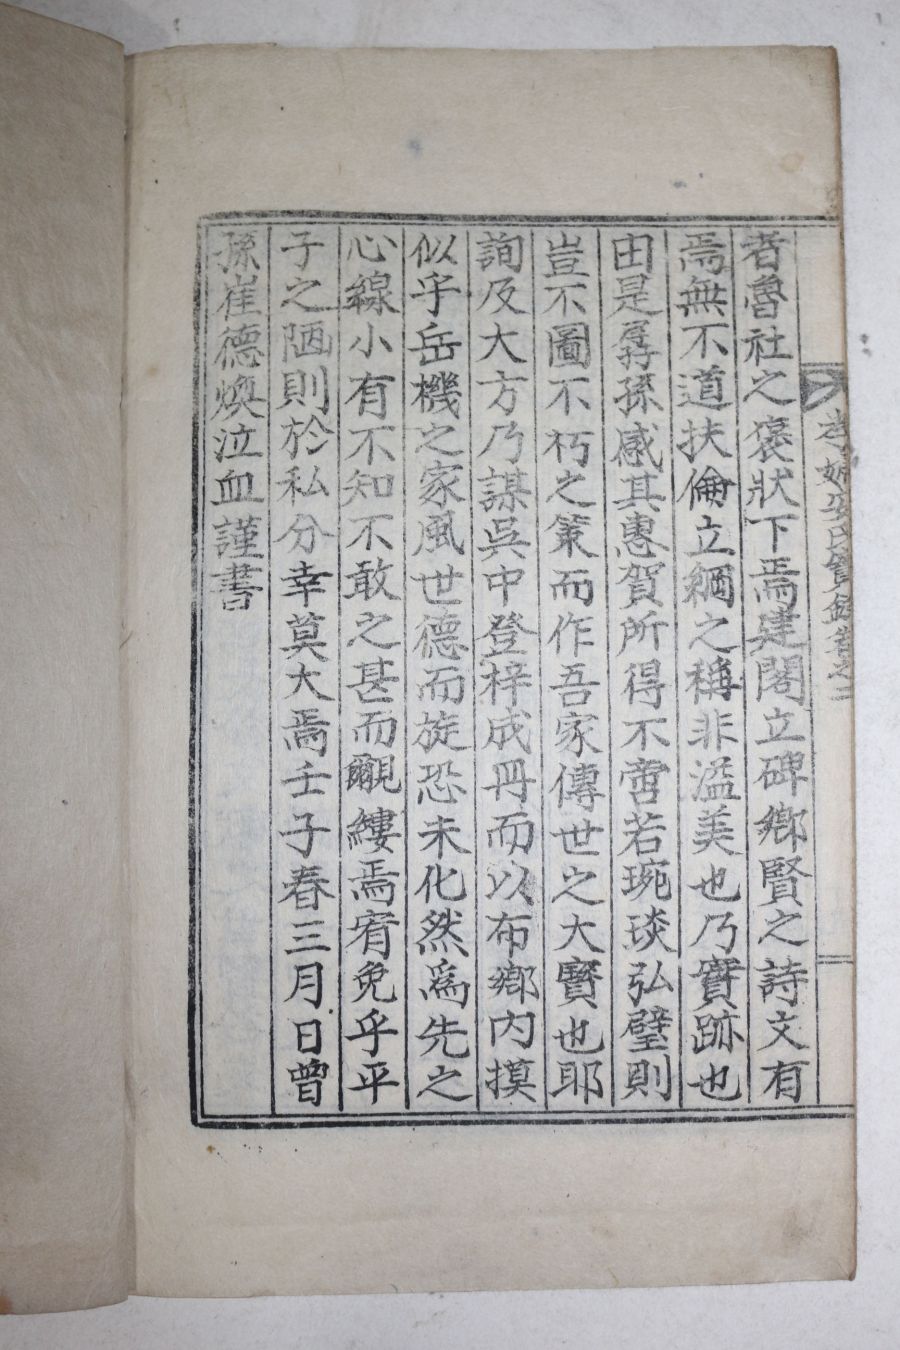 孝婦安氏實錄卷之二
者魯社之褒狀下焉建閣立碑鄉賢之詩文有
焉無不道扶倫立綱之稱非溢美也乃實跡也
由是孱孫感其惠賀所得不啻若琬琰弘璧則
豈不圖不朽之策而作吾家傳世之大寶也耶
詢及大方乃謀吳中登梓成冊而以布鄉內摸
似乎岳機之家風世德而旋恐未化然爲先之
心線小有不知不敢之甚而覼縷焉宥免乎平
子之陋則於私分幸莫大焉壬子春三月日曾
孫崔德煥泣血謹書